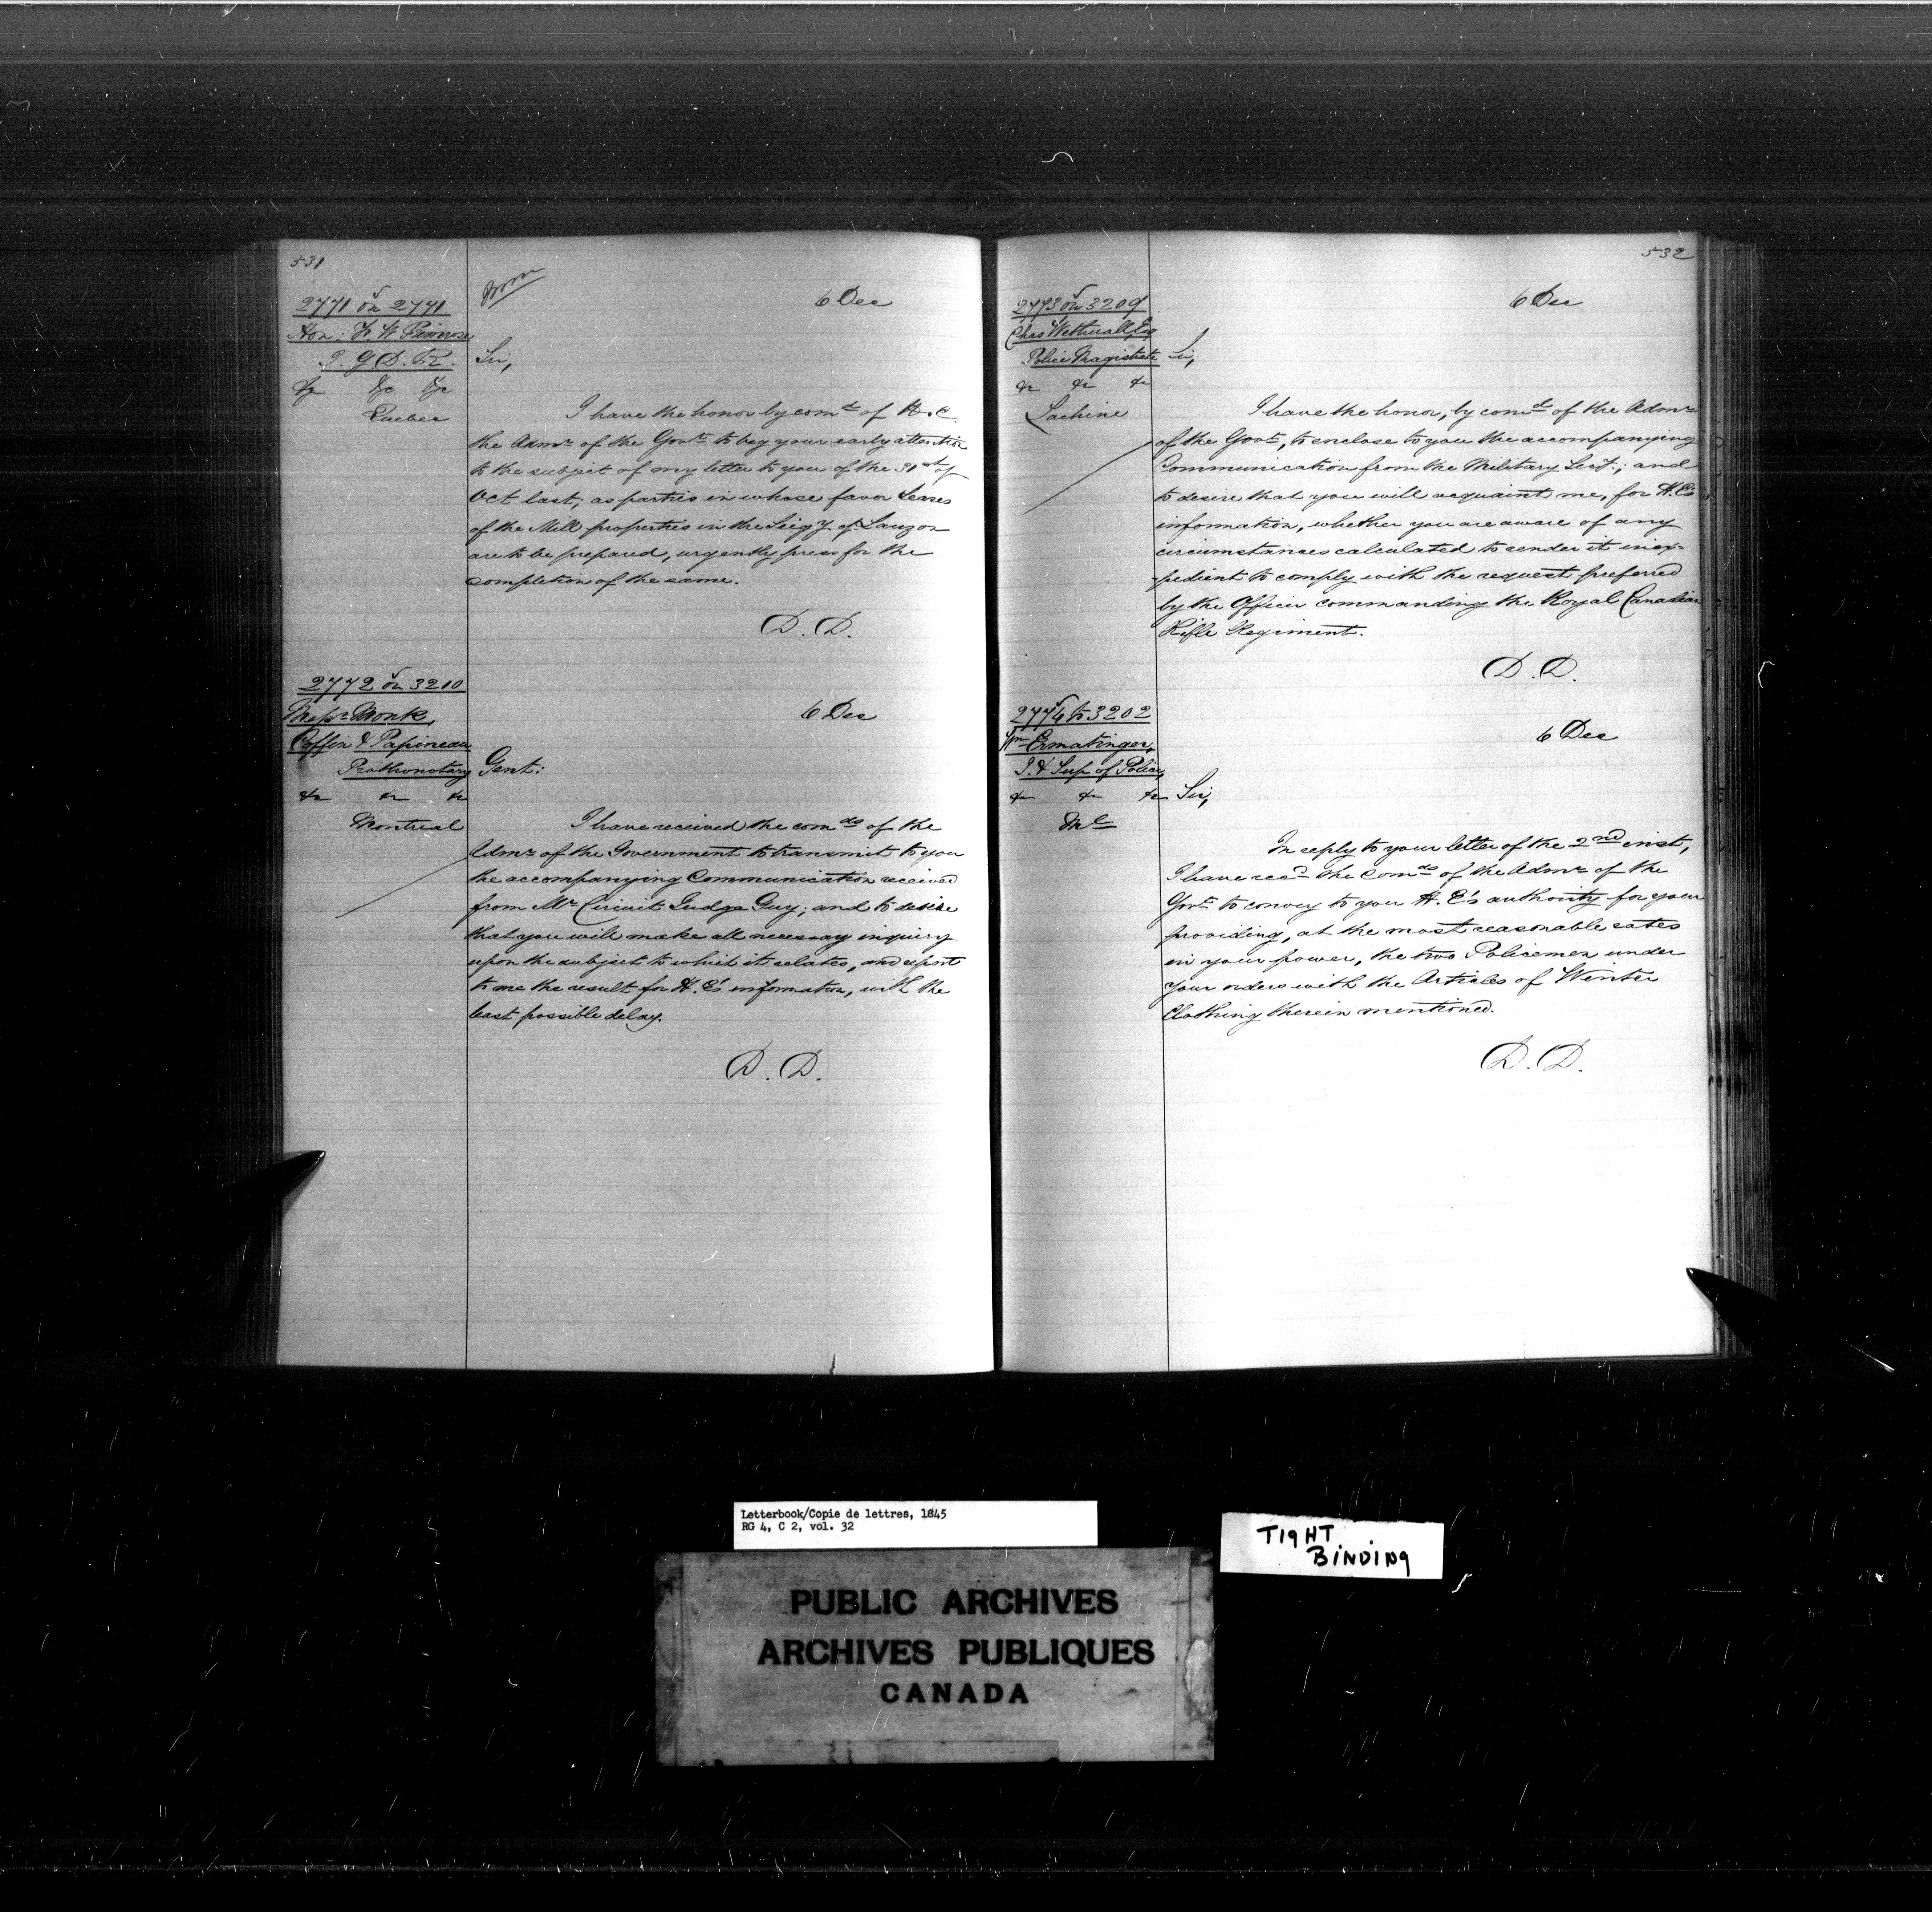 531
6 Dec
2771 on 2771
Hon: F. W Primrose
I. G D. &c.
&c &c &c
Quebec
Sir,
I have the honor by comd of H. E.
the Admr of the Govt to beg your early attention
to the subject of my letter to you of the 31st of
Oct last, as parties in whose favor Leases
of the Mill properties in the Seigy of Lauzon
are to be prepared, urgently press for the
completion of the same.
D. D.
2772 on 3210
Messrs Monk,
Coffin & Papineau
Prothonotary
&c &c &c
Montreal
6 Dec
Gent:
I have received the comds of the
Admr of the Government to transmit to you
the accompanying Communication received
from Mr Circuit Judge Guy; and to desire
that you will make all necessary inquiry
upon the subject to which it relates, and report
to me the result for H. E's information, with the
least possible delay.
D. D.
532
6 Dec
2773 on 3209
Chas Wetherall, Esq
Police Magistrate
&c &c &c
Lachine
Sir,
I have the honor, by comd of the Admr
of the Govt, to enclose to you the accompanying
Communication from the Military Secy.; and
to desire that you will acquaint me, for H. E's
information, whether you are aware of any
circumstances calculated to render it inex-
-pedient to comply with the request preferred
by the Officer commanding the Royal Canadian
Rifle Regiment.
D. D.
2774 to 3202
Wm Ermatinger,
I. & Sup of Police
&c &c &c
Ml
6 Dec
Sir,
In reply to your letter of the 2nd inst,
I have recd the Comds of the Admr of the
Govt to convey to you H. E's authority for your
providing, at the most reasonable rates
in your power, the two Policemen under
your orders with the Articles of Winter
Clothing therein mentioned.
D. D.
Letterbook/Copie de lettres, 1845
RG 4, C 2, vol. 32
TIGHT
BINDING
PUBLIC ARCHIVES
ARCHIVES PUBLIQUES
CANADA